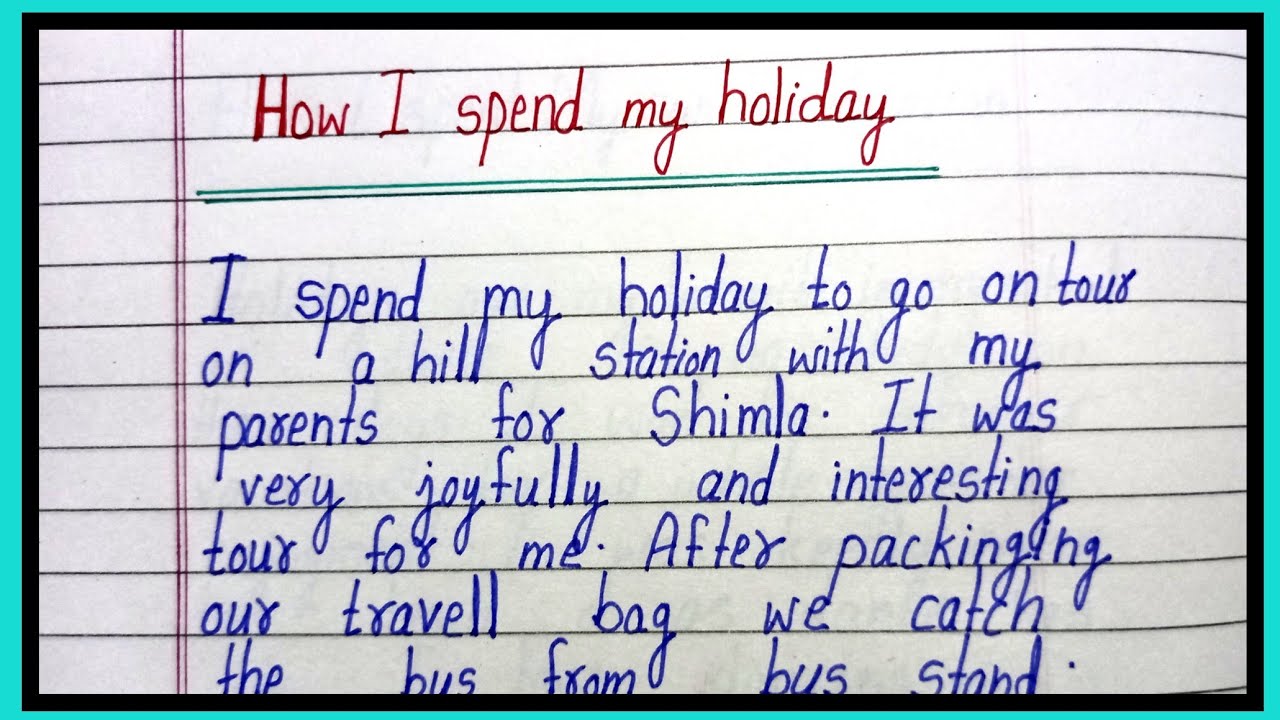 How I spend my holiday
I spend my holiday to go on tour
on a hill station with my
parents for Shimla. It was
very joyfully and interesting
tour for me. After packinging
our travell bag we catch
the bus from bus stand.